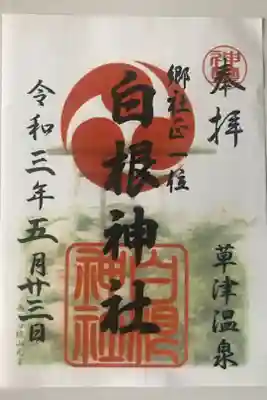 奉拝
草津温泉
郷社正一位
白根神社
白根神社
令和三年五月廿三日